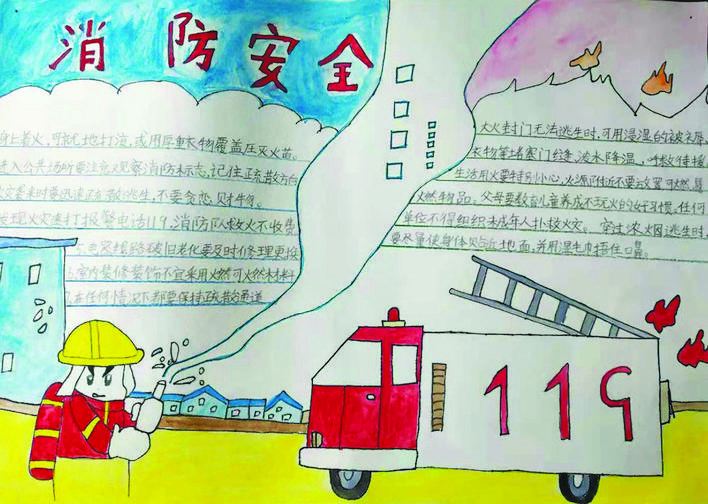 消防安全
身上着火,可就地打滚,或用厚重衣物覆盖压灭火苗。
进入公共场所要注意观察消防标志,记住疏散方向
火灾袭来时要迅速疏散逃生,不要贪恋财物。
发现火灾速打报警电话119,消防队救火不收费
电线路破旧老化要及时修理更换
室内装修装饰不宜采用易燃可燃材料
在任何情况下都要保持疏散通道
大火封门无法逃生时,可用浸湿的被褥
衣物等堵塞门缝,泼水降温,呼救待援
生活用火要特别小心,火源附近不要放置可燃易
燃物品。父母要教育儿童养成不玩火的好习惯,任何
单位不得组织未成年人扑救火灾。穿过浓烟逃生时,
要尽量使身体贴近地面,并用湿毛巾捂住口鼻。
119